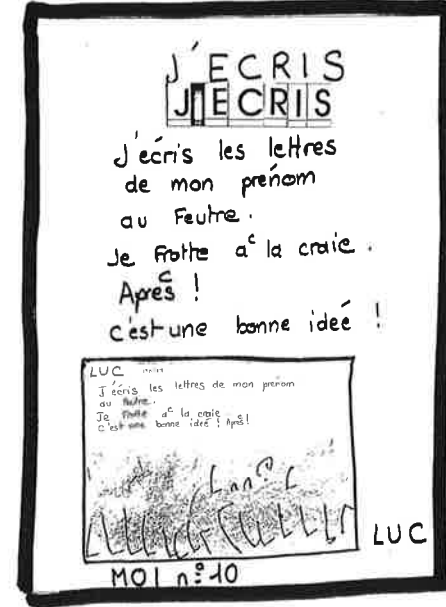 J'ECRIS
J'ECRIS
J'ecris les lettres
de mon prenom
au Feutre.
Je Frotte a la craie.
Apres !
c'est une bonne ideé !
LUC
J'écris les lettres de mon prenom
au feutre.
Je frotte a la craie
c'est une bonne ideé ! Après!
LUC
MOI n° 10